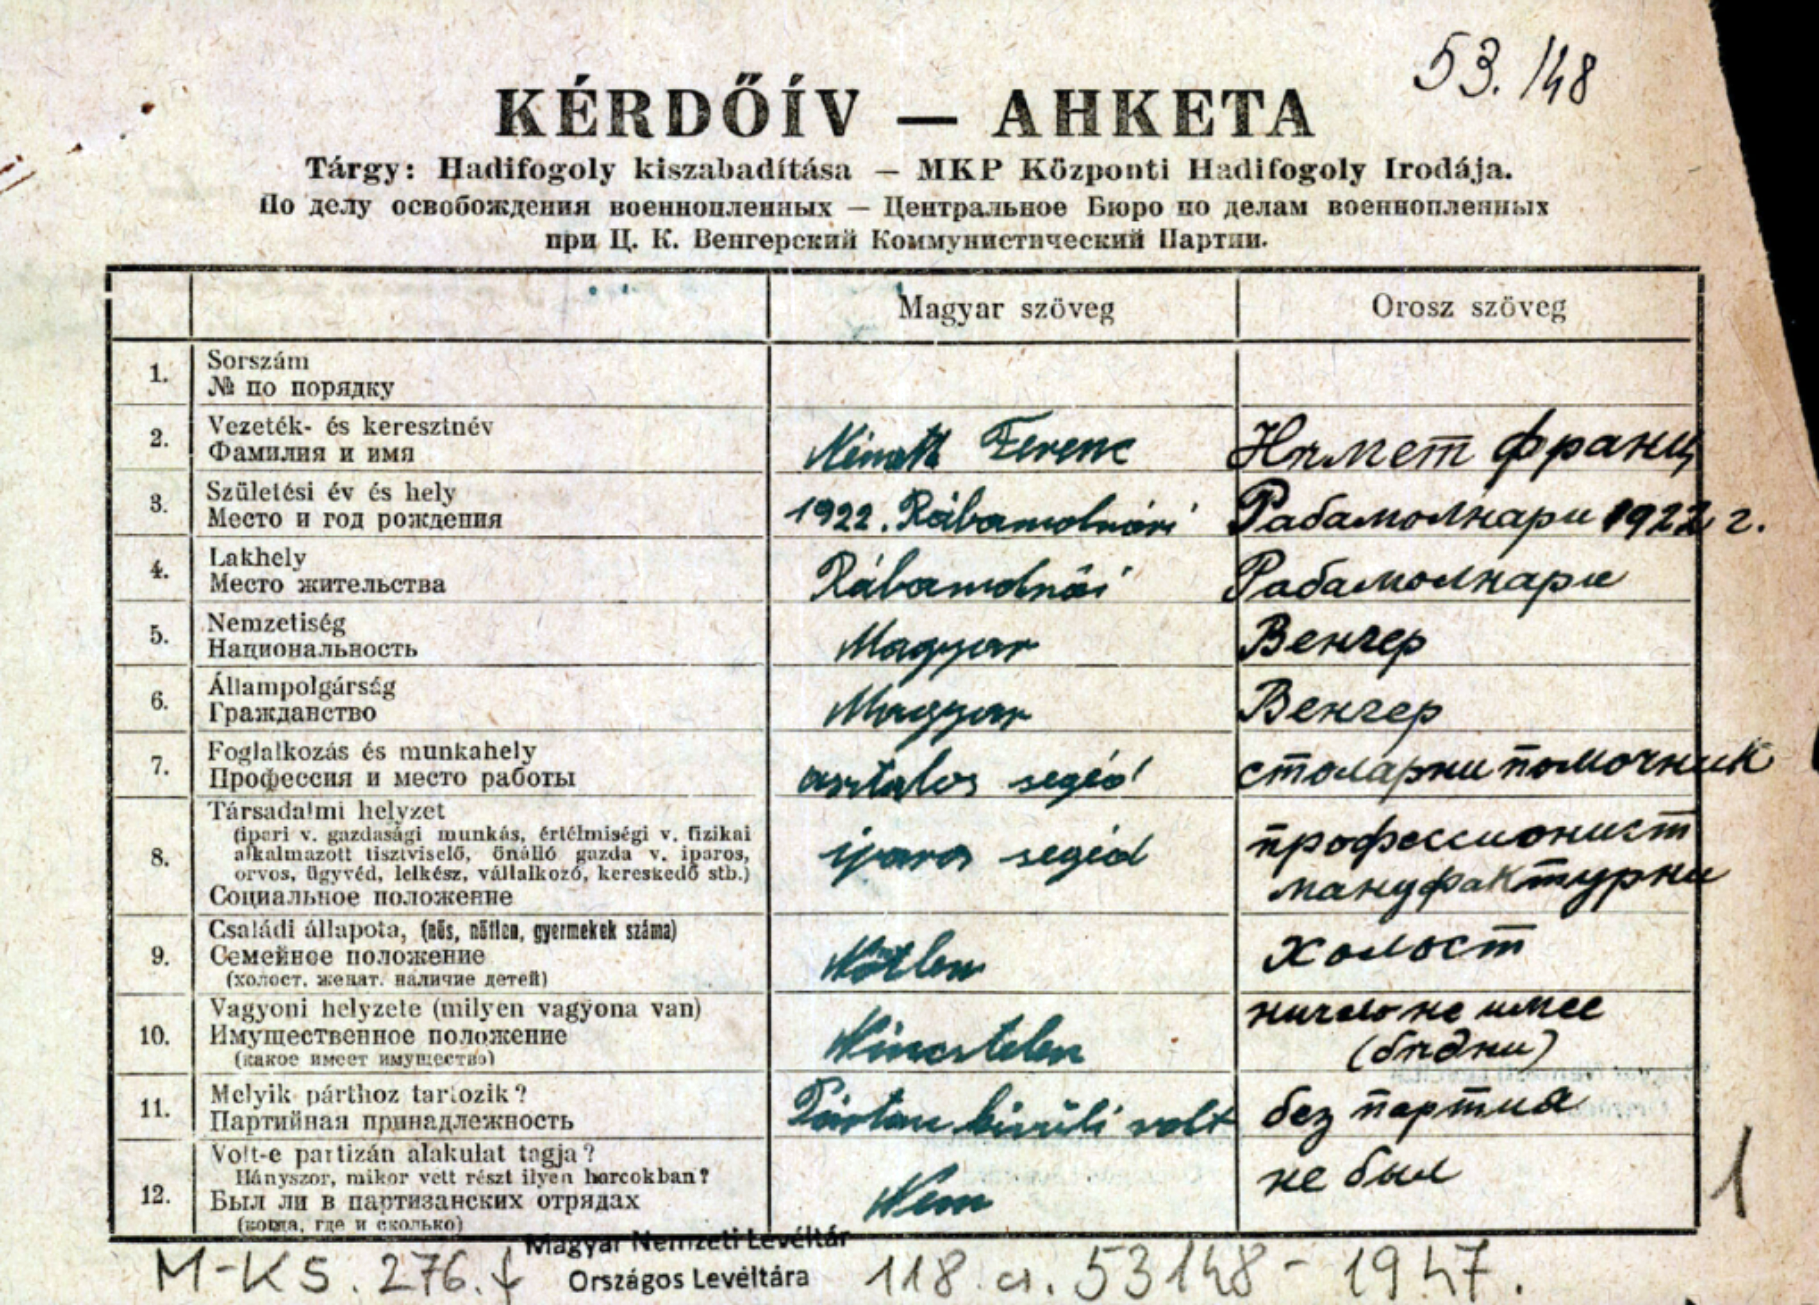 53.148
KÉRDŐÍV — АНКЕТА
Tárgy: Hadifogoly kiszabadítása — MKP Központi Hadifogoly Irodája.
По делу освобождения военнопленных — Центральное Бюро по делам военнопленных
при Ц. К. Венгерский Коммунистический Партии.
Magyar szöveg Orosz szöveg
1. Sorszám
№ по порядку
2. Vezeték- és keresztnév
Фамилия и имя
Németh Ferenc Нѣмет Франц
3. Születési év és hely
Место и год рождения
1922. Rábamolnári Рабамолнари 1922 г.
4. Lakhely
Место жительства
Рабамолнари
5. Nemzetiség
Национальность
Magyar Венгер
6. Állampolgárság
Гражданство
Magyar Венгер
7. Foglalkozás és munkahely
Профессия и место работы
asztalos segéd столарни помочник
8. Társadalmi helyzet
(ipari v. gazdasági munkás, értelmiségi v. fizikai
alkalmazott tisztviselő, önálló gazda v. iparos,
orvos, ügyvéd, lelkész, vállalkozó, kereskedő stb.)
Социальное положение
iparos segéd профессионист
мануфактурни
9. Családi állapota, (nős, nőtlen, gyermekek száma)
Семейное положение
(холост. женат. наличие детей)
Nőtlen холост
10. Vagyoni helyzete (milyen vagyona van)
Имущественное положение
(какое имеет имущество)
Nincstelen не имее
(бѣдни)
11. Melyik párthoz tartozik?
Партийная принадлежность
Párton kívüli volt без партиа
12. Volt-e partizán alakulat tagja?
Hányszor, mikor vett részt ilyen harcokban?
Был ли в партизанских отрядах
(когда, где и сколько)
Nem не был
1
Magyar Nemzeti Levéltár
Országos Levéltára
M-KS. 276. f 118. cs. 53148-1947.